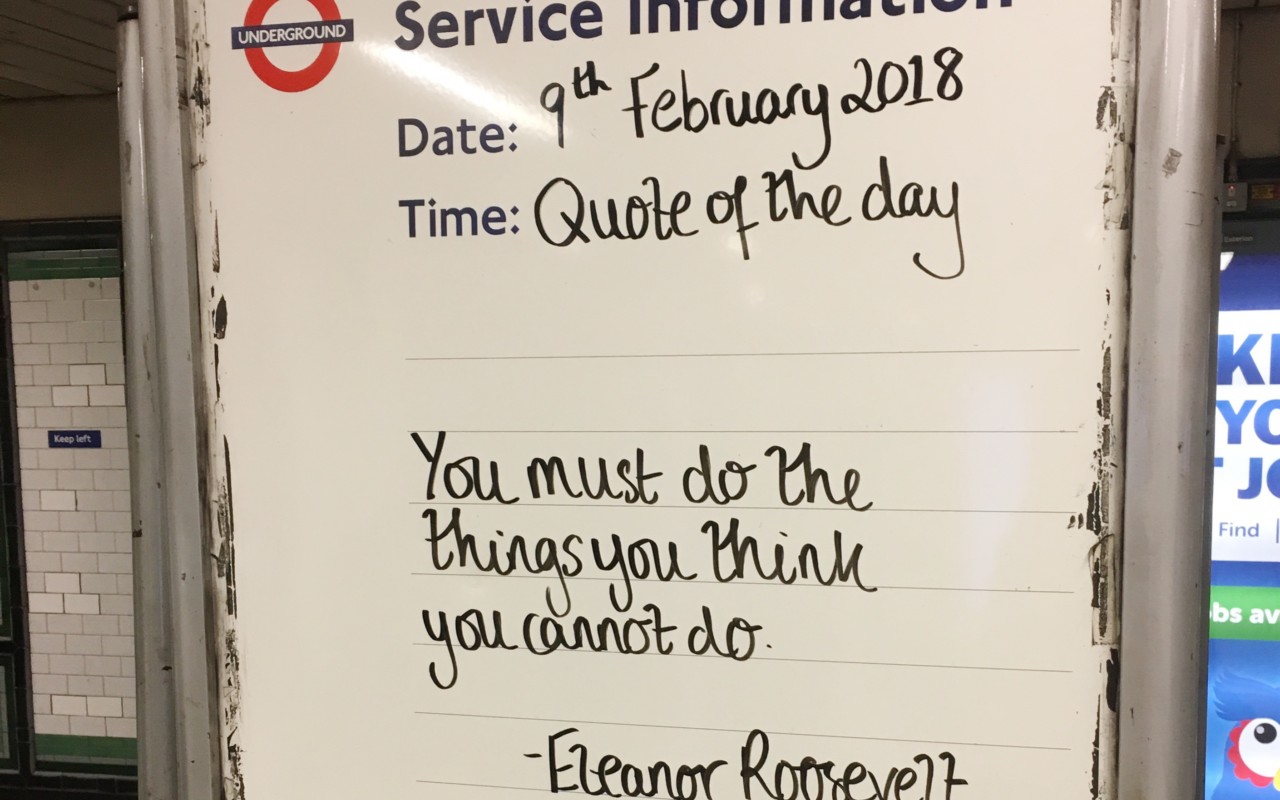 UNDERGROUND
Service Information
Date: 9th February 2018
Time: Quote of the day
Keep left
You must do the
things you think
you cannot do.
-Eleanor Roosevelt
Find